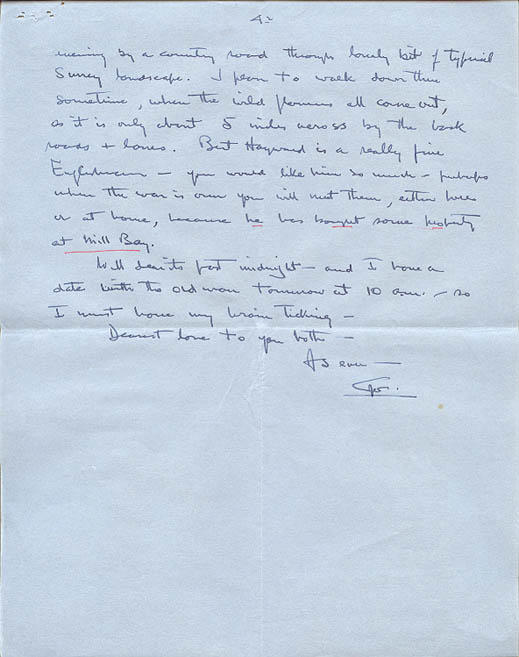 4.
evening by a country road through lovely bit of typical
Surrey landscape. I plan to walk down there
sometime, when the wild flowers all come out,
as it is only about 5 miles across by the back
roads + lanes. But Hayward is a really fine
Englishman – you would like him so much – perhaps
when the war is over you will meet them, either here
or at home, because he has bought some property
at Mill Bay.
Well dears its past midnight – and I have a
date with the old man tomorrow at 10 a.m. – so
I must have my brain ticking –
Dearest love to you both –
As ever –